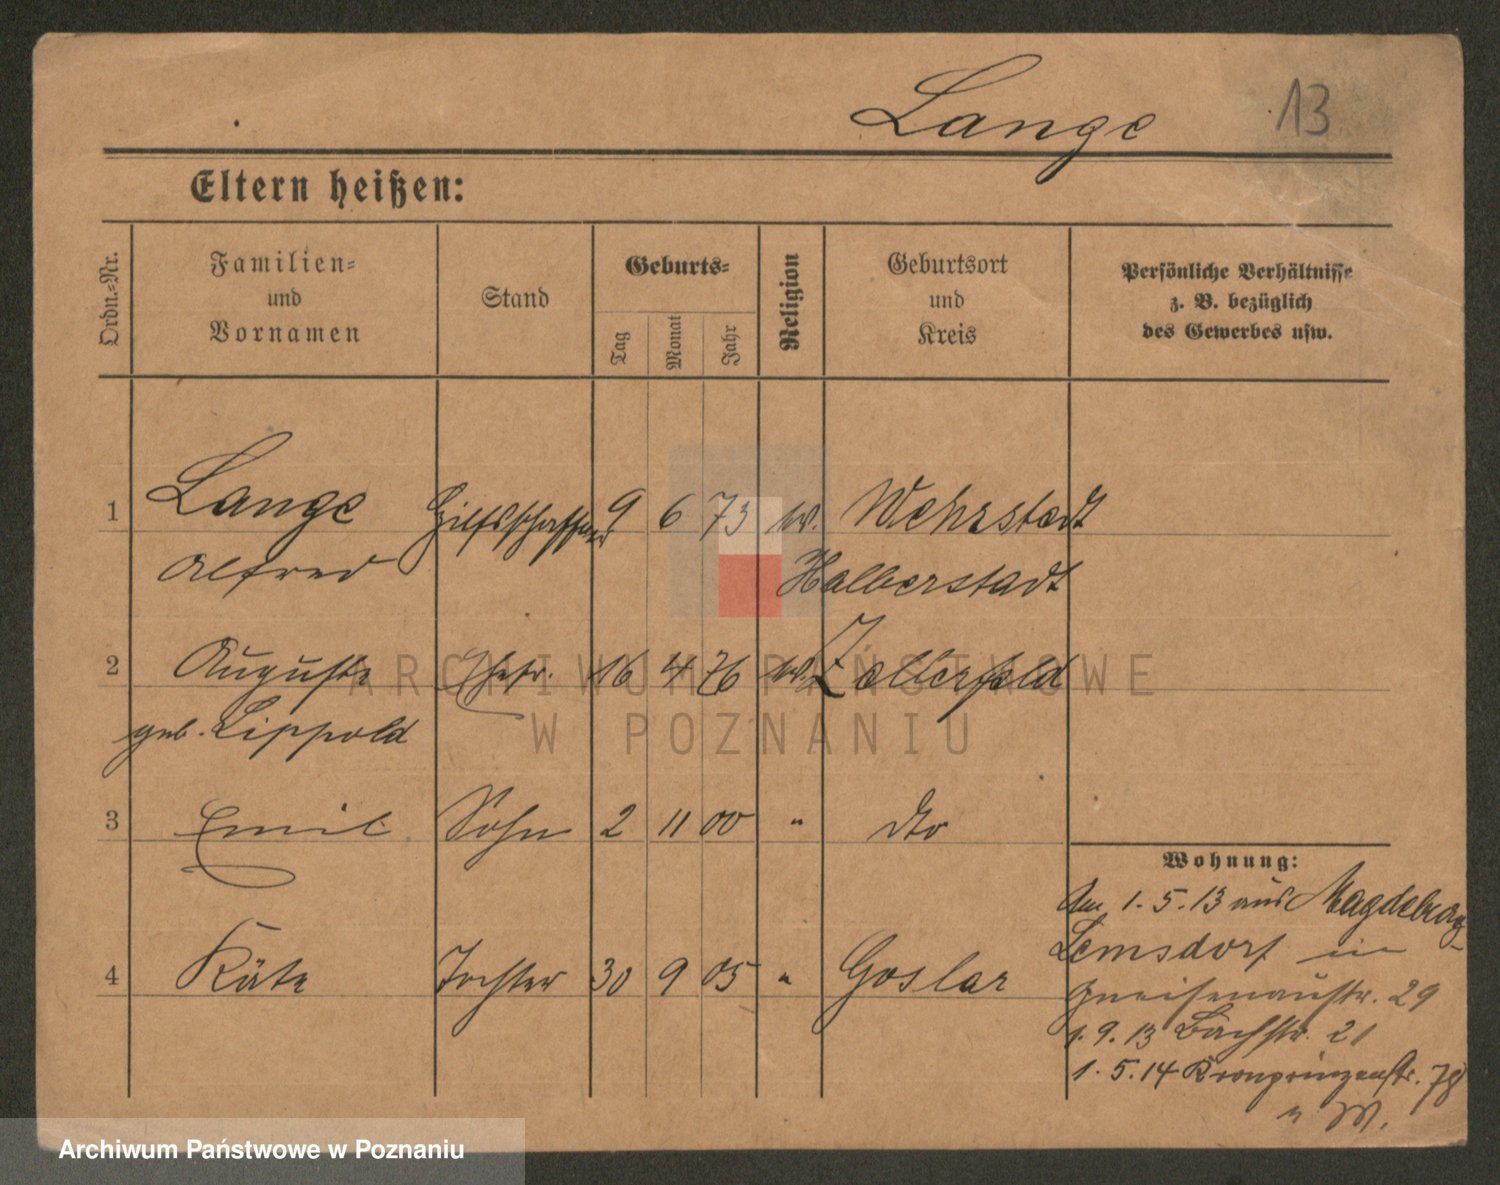 Lange 13
Eltern heißen:
Ordn.=Nr.
Familien=
und
Vornamen
Stand
Geburts=
Tag
Monat
Jahr
Religion
Geburtsort
und
Kreis
Persönliche Verhältnisse
z. B. bezüglich
des Gewerbes usw.
1 Lange Hilfsschaffner 9 6 73 ev. Wehrstedt
Alfred Halberstadt
2 Auguste Ehefr. 16 4 76 ev. Zellerfeld
geb. Lippold
3 Emil Sohn 2 11 00 " dto
4 Käte Tochter 30 9 05 " Goslar
Wohnung:
Am 1.5.13 aus Magdeburg
Lemsdorf in
Gneisenaustr. 29
1.9.13 Bachstr. 21
1.5.14 Kronprinzenstr. 78
ARCHIWUM PAŃSTWOWE
W POZNANIU
Archiwum Państwowe w Poznaniu